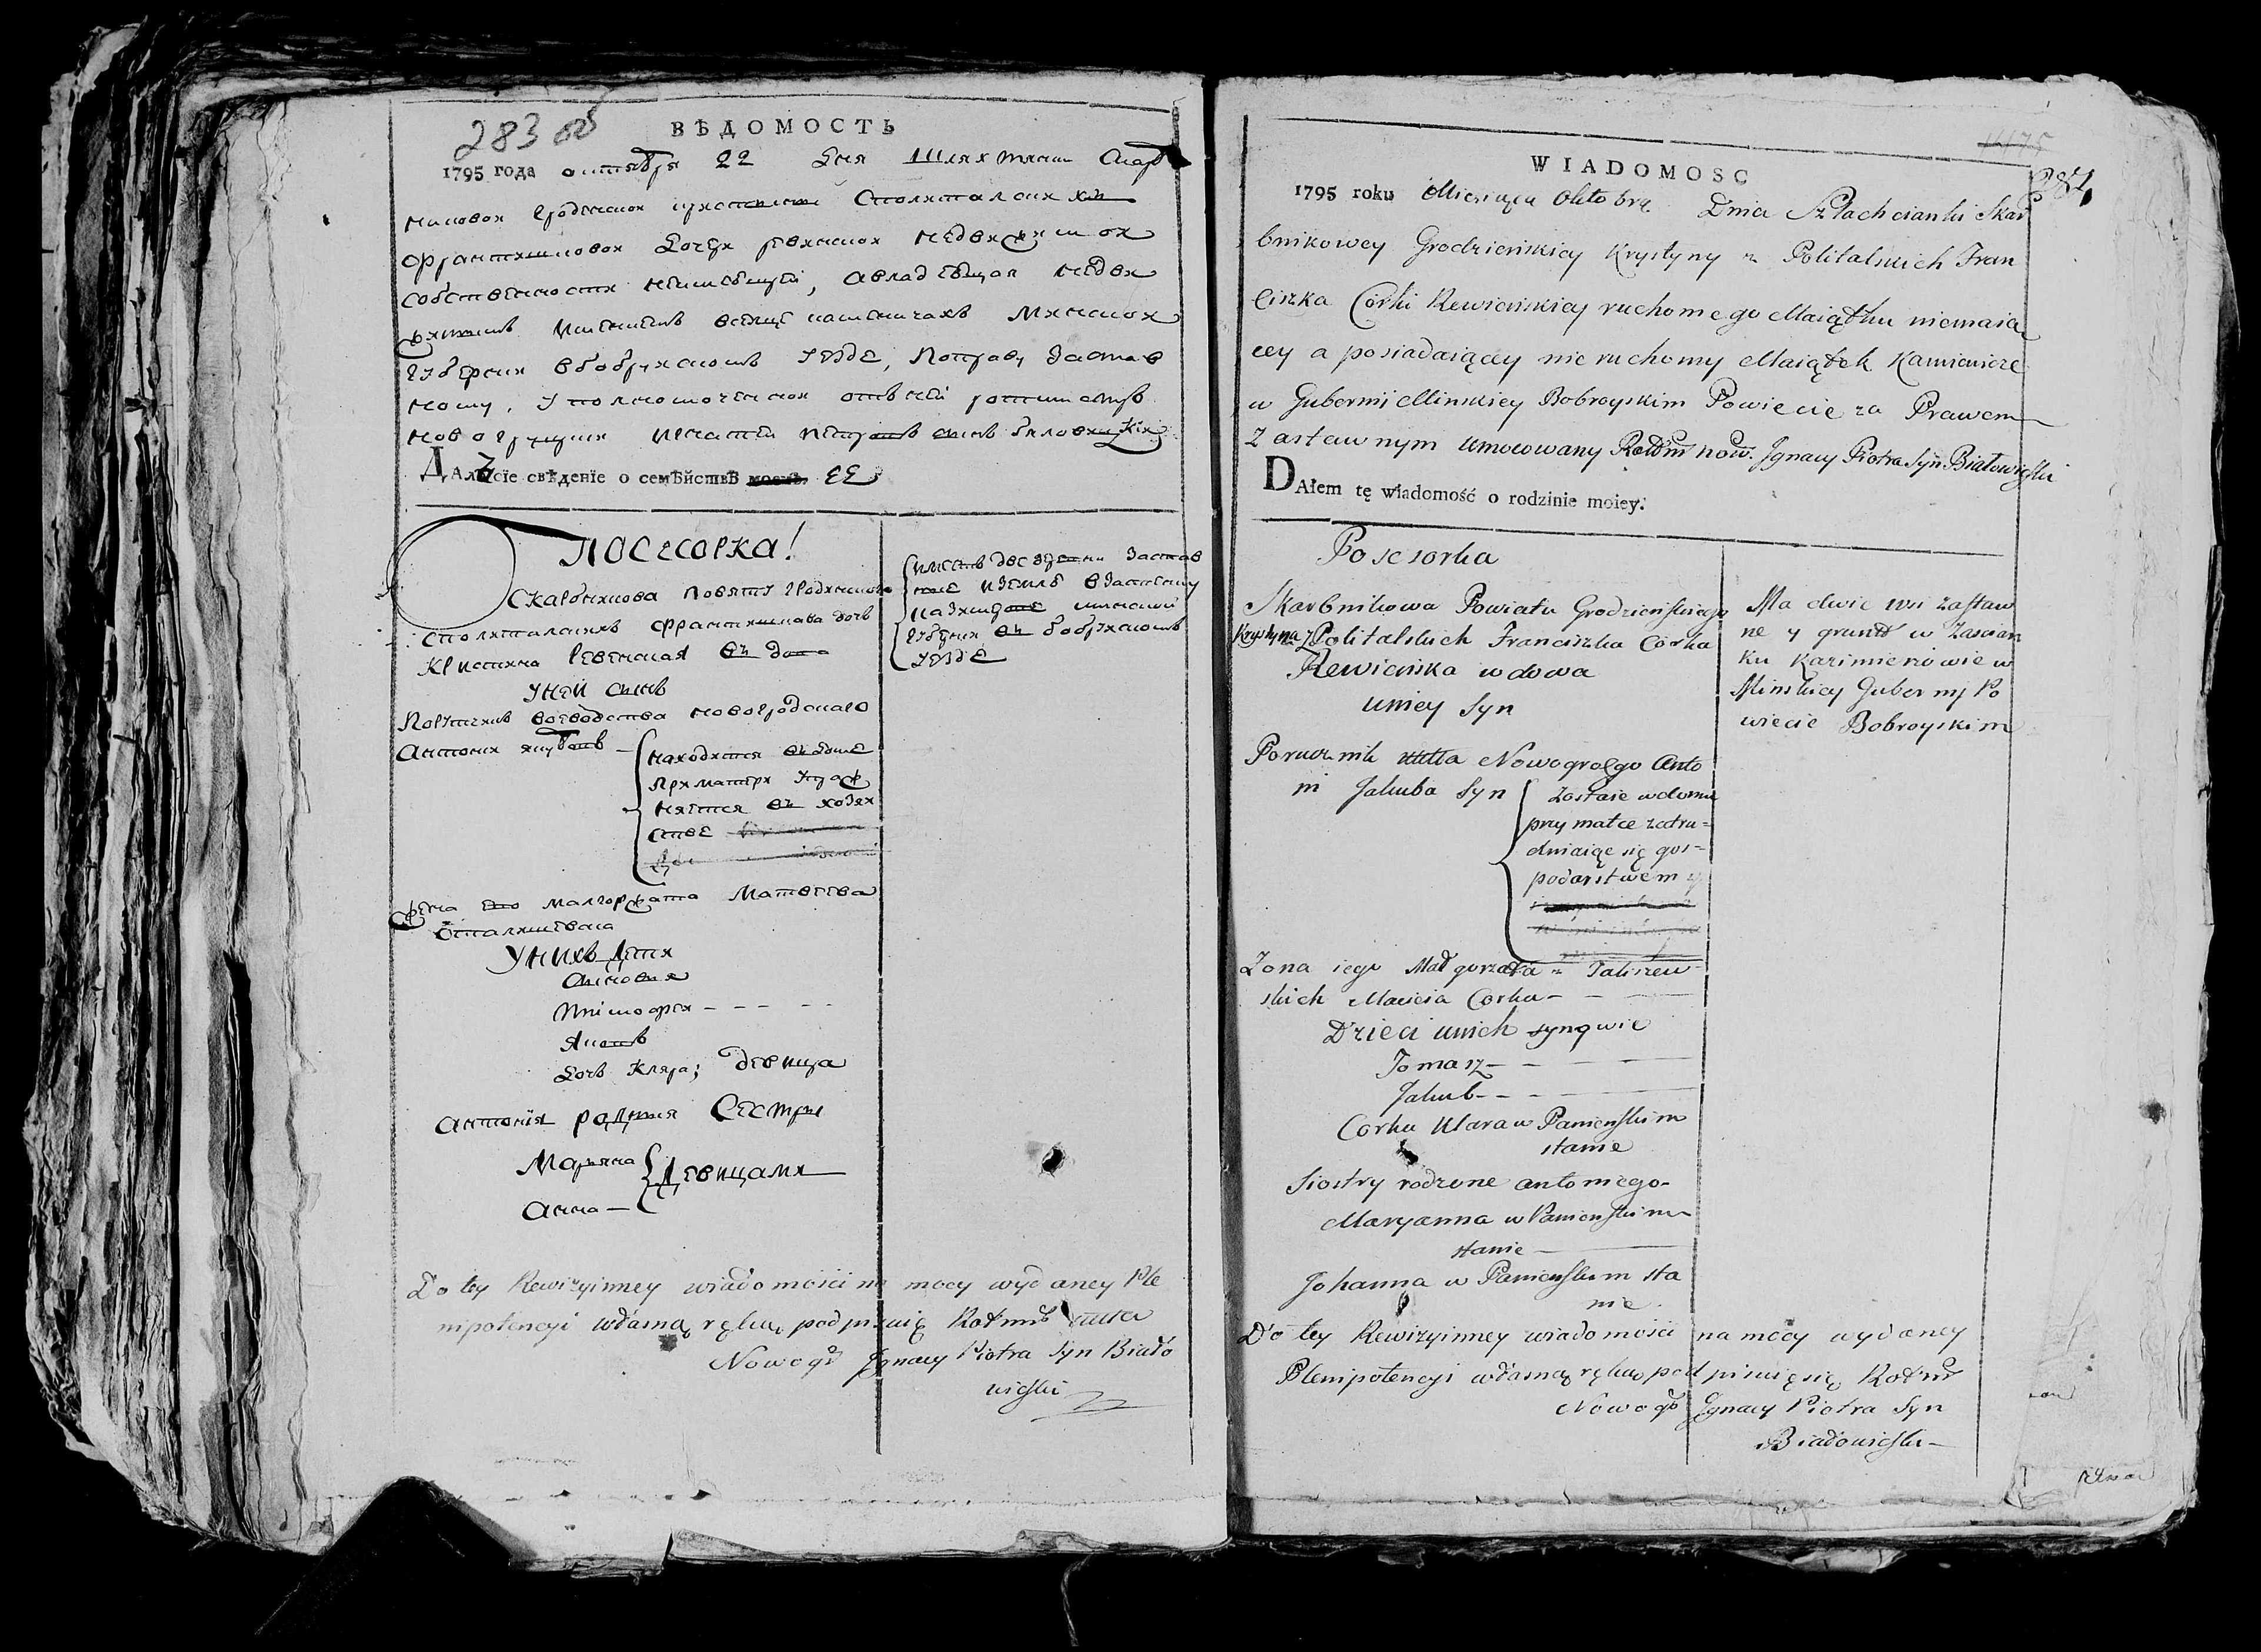 283 об
ВѢДОМОСТЬ
1795 года октября 22 дня Шляхтянки Скарб
никовой Гродненской
францишковой дочери ревенской недвижимой
собственности неимеющей, авладеющая недви
жимымъ имениемъ Минской
губернии вбобруйскомъ уезде, Поправу застав
ному, Уполномоченной отъ ней ротмистръ
новогруцкий игнатей петровъ сынъ бяловицкий
ДАлъ сїе свѣденїе о семѣйствѣ ее
посесорка!
Скарбникова повяту Гродненского
сполиталскихъ францишкава дочь
Кристина Ревенская вдова
Уней сынъ
Порутчикъ воеводства новогродскаго
Антоний якубовъ — находится вдоме
при матери упраж
няется въ хозяй
стве
жена его малгоржата Матвеева
сталишевска
Унихъ дети
сыновья
тимофей - - - -
якубъ
дочь Кляра; девица
антония родныя Сестры
Марьяна девицами
анна —
имеетъ две деревни застав
ные изем­ле взастенку
казимирове минской
губернии въ бобруйскомъ
уезде
Do tey Rewizyinney wiadomości na mocy wydaney Ple
nipotencyi własną ręką podpisuię Rotmb wttwa
Nowogb Jgnacy Piotra Syn Biało
wieski
WIADOMOSC
284
1795 roku Miesiąca Oktobra Dnia Szlachcianki Skar
bnikowey Grodzieńskiey Krystyny z Politalskich Fran
ciszka Corki Rewieńskiey ruchomego Maiątku niemaią
cey a posiadaiącey nie ruchomy Maiątek Kamienicze
w Gubernij Minskiey Bobroyskim Powiecie za Prawem
Zastawnym umocowany Rotm now. Jgnacy Piotra Syn Białowieski
DAłem tę wiadomość o rodzinie moiey:
Posesorka
Skarbnikowa Powiatu Grodzieńskiego
Krystyna z Politalskich Franciszka Corka
Rewieńska wdowa
uniey Syn
Porucznik wttwa Nowogrolgo Anto
ni Jakuba Syn Zostaie wdomu
przy matce zatru=
dniaiąc się gos=
podarstwem y
Zona iego Małgorzata z Taliszew
skich Macieia Corka - -
Dzieci unich synowie
Tomasz - -
Jakub - - -
Corka Klara w Panieńskim
stanie
Siostry rodzone antoniego-
Maryanna w Panieńskim
stanie
Johanna w Panieńskim sta
nie.
Ma dwie wsi zastaw
ne y grunt w Zascian
ku Kazimierowie w
Minskiey Gubernij Po
wiecie Bobroyskim
Do tey Rewizyinney wiadomości na mocy wydaney
Plenipotencyi własną ręką podpisuię się Rotmb
Nowogb Jgnacy Piotra Syn
Białowieski